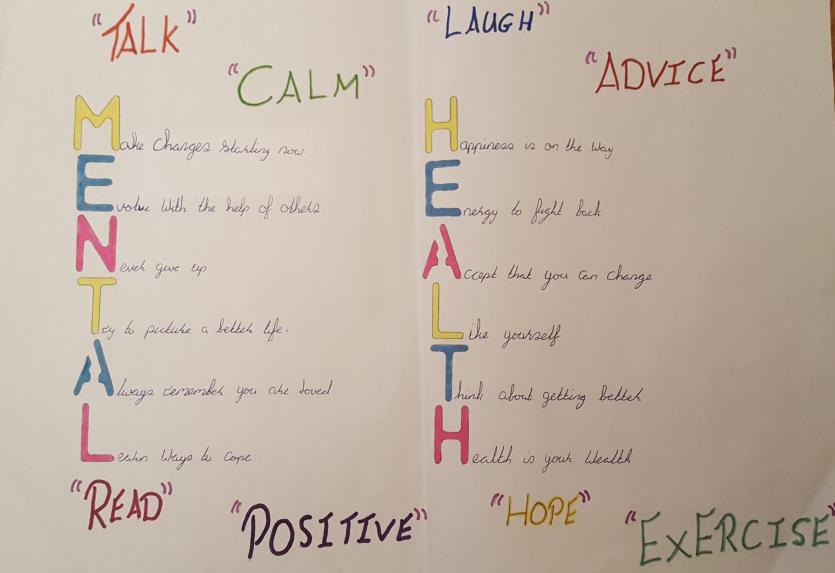 "TALK"
"LAUGH"
"CALM"
"ADVICE"
Make Changes starting now.
Evolve With the help of others.
Never give up.
Try to picture a better life.
Always remember you are loved
Learn Ways to cope.
Happiness is on the Way
Energy to fight back
Accept that you can change
Like yourself
Think about getting better
Health is your Wealth
"READ"
"POSITIVE"
"HOPE"
"EXERCISE"